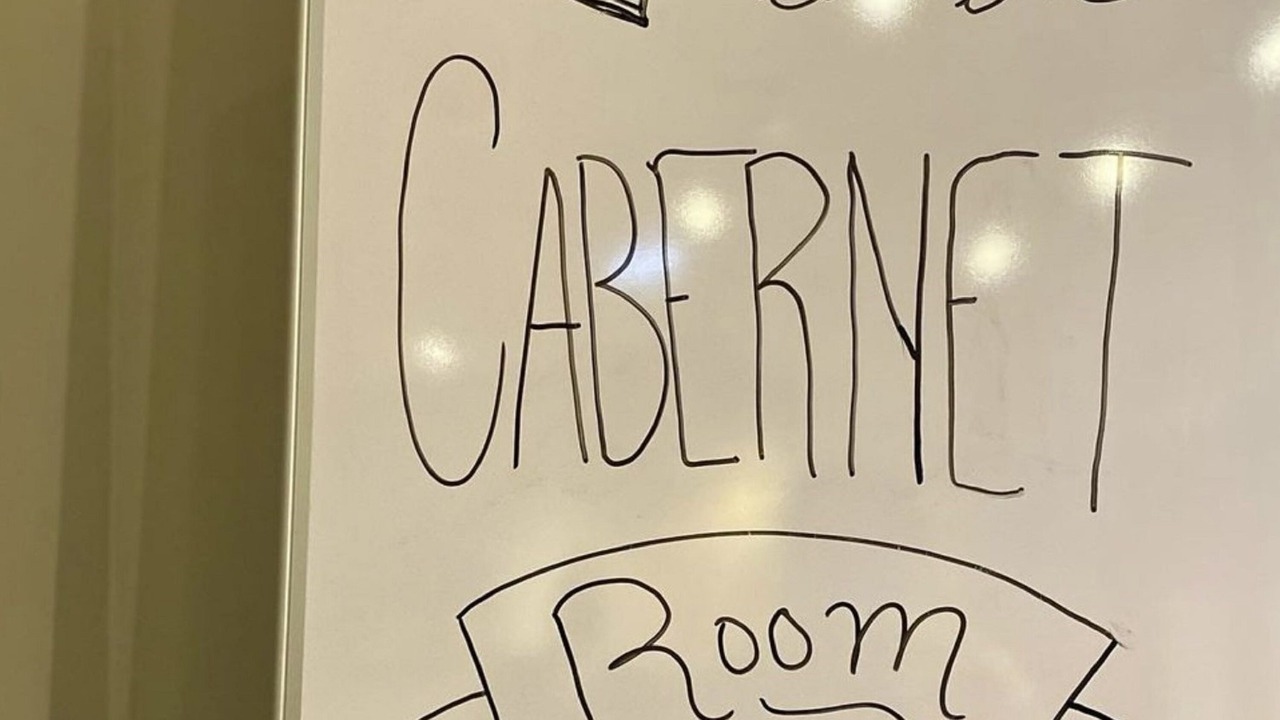 CABERNET
Room